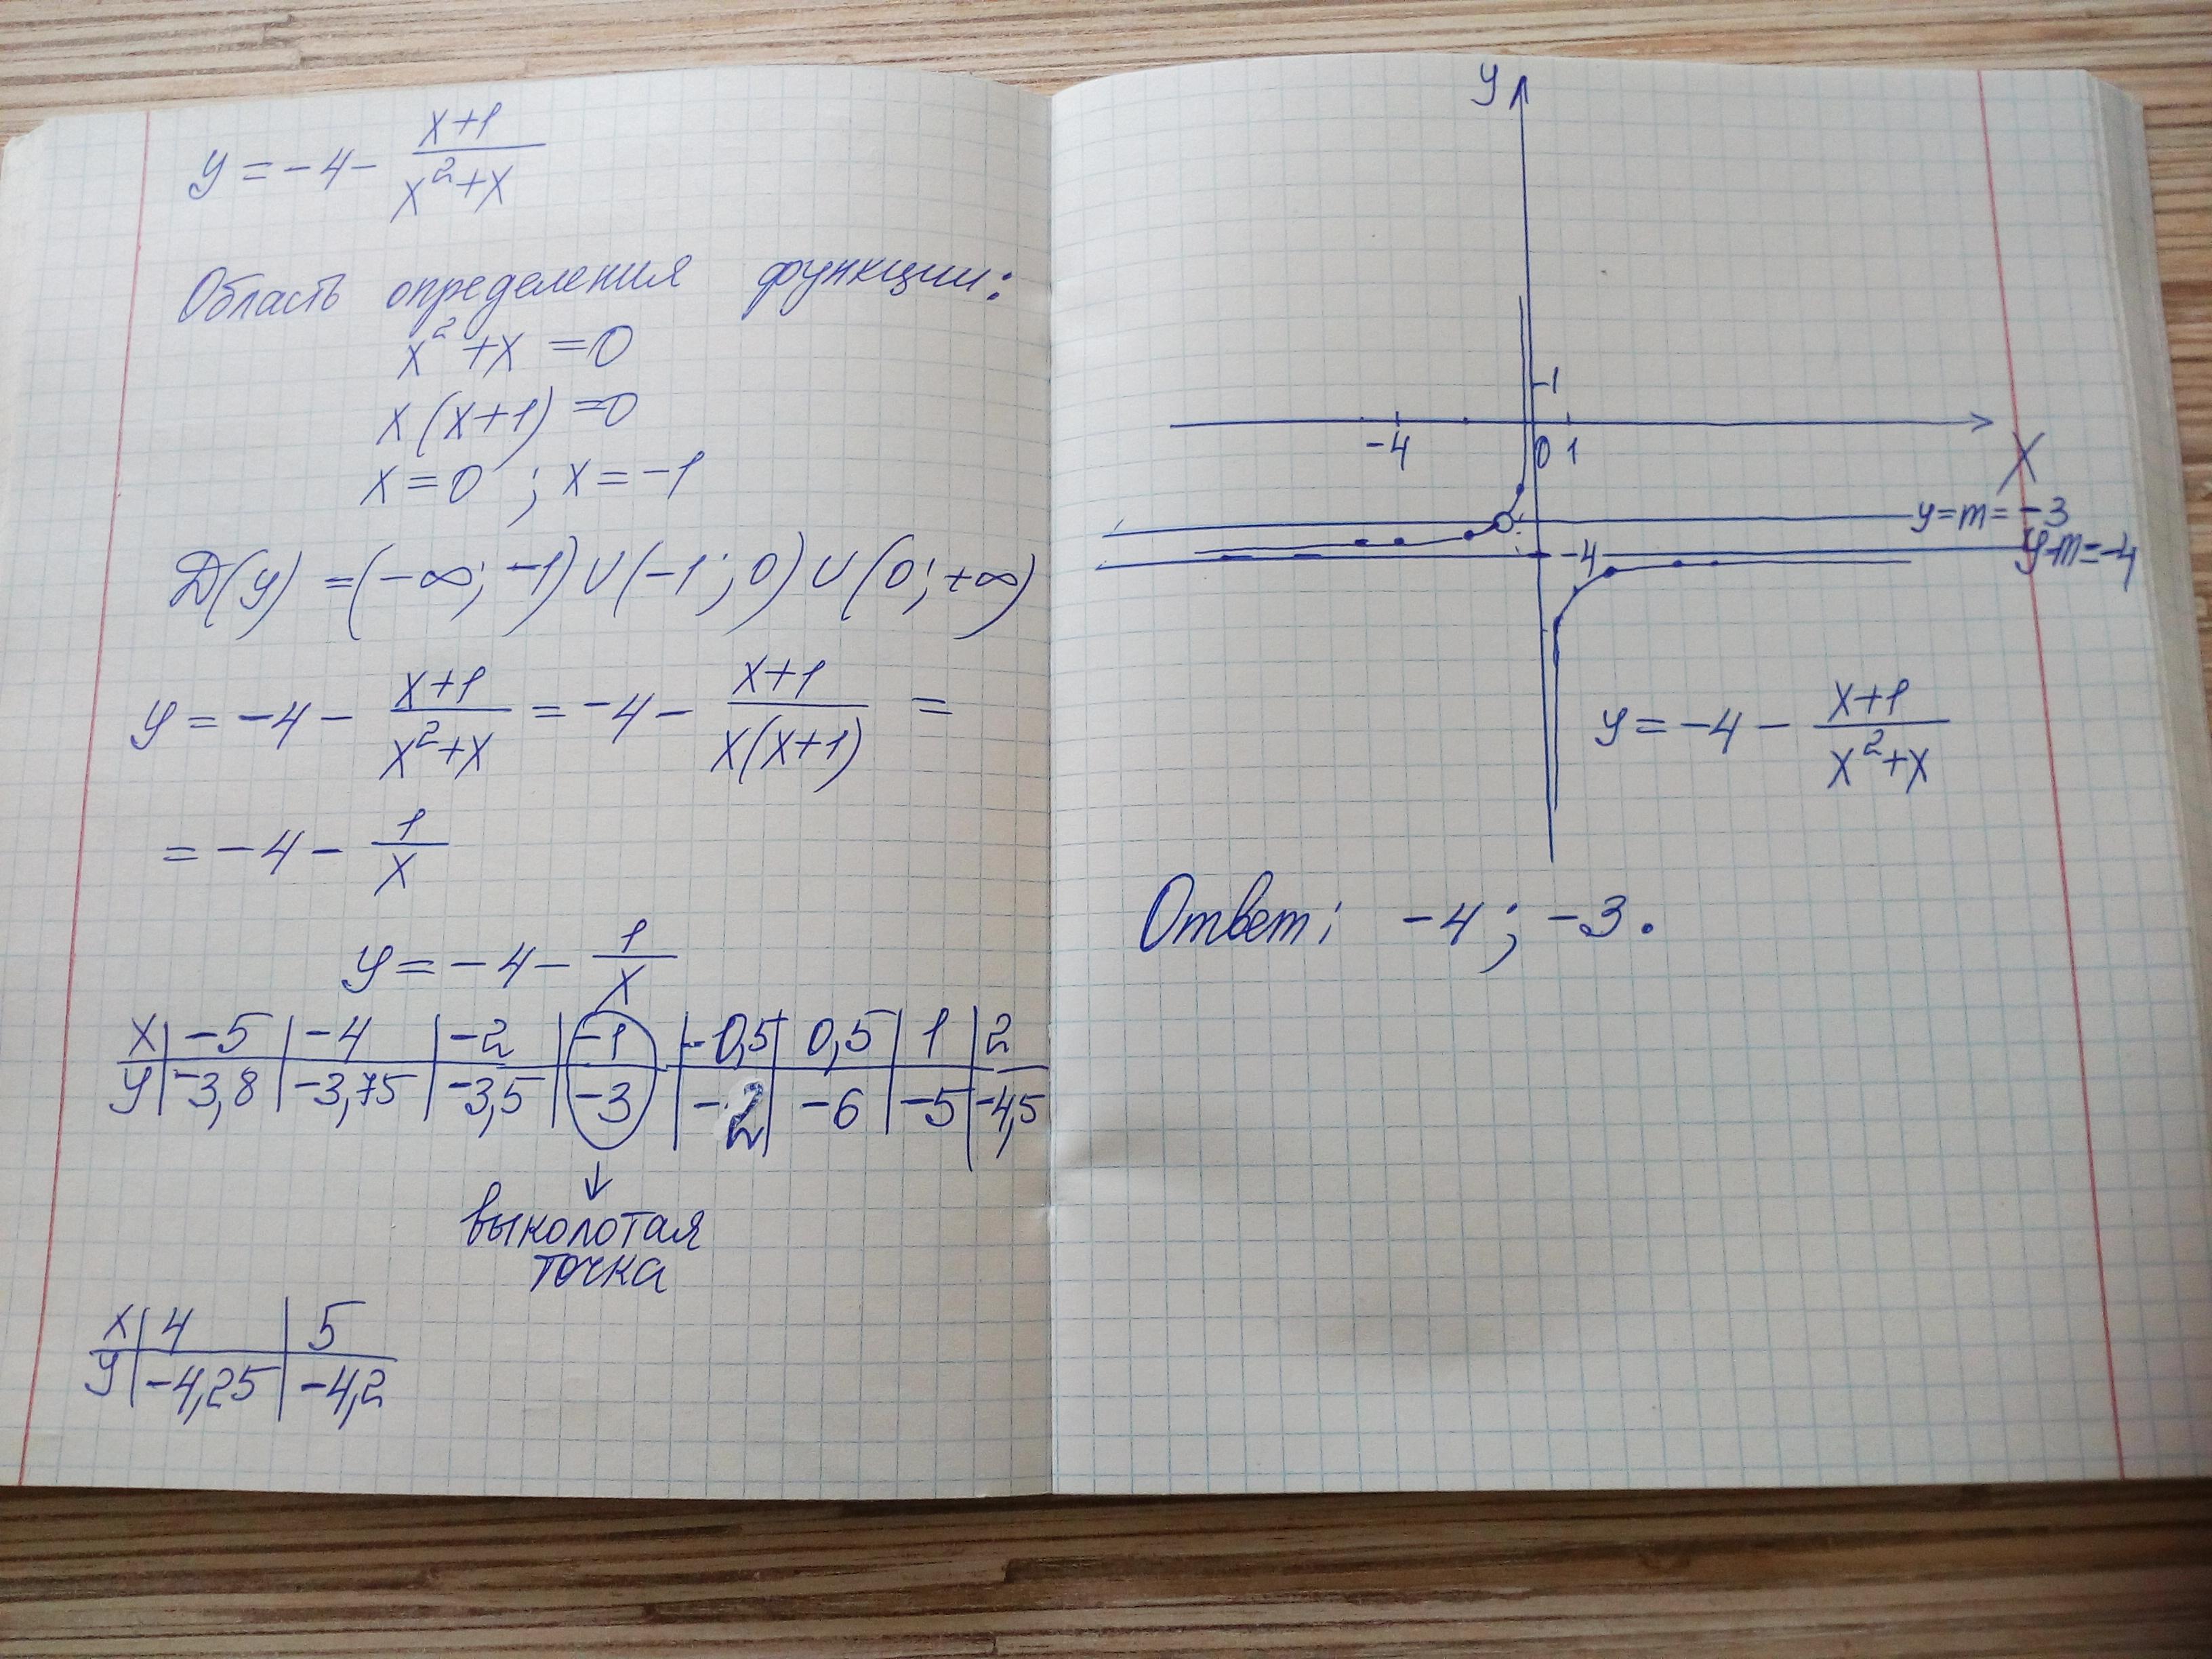 y = -4 - (x+1)/(x²+x)
Область определения функции:
x² + x = 0
x(x+1) = 0
x = 0 ; x = -1
D(y) = (-∞; -1) ∪ (-1; 0) ∪ (0; +∞)
y = -4 - (x+1)/(x²+x) = -4 - (x+1)/(x(x+1)) =
= -4 - 1/x
y = -4 - 1/x
x | -5 | -4 | -2 | -1 | -0,5 | 0,5 | 1 | 2
y | -3,8 | -3,75 | -3,5 | -3 | -2 | -6 | -5 | -4,5
выколотая
точка
x | 4 | 5
y | -4,25 | -4,2
y
1
-4 0 1
x
y = m = -3
-4 y=m=-4
y = -4 - (x+1)/(x²+x)
Ответ: -4; -3.